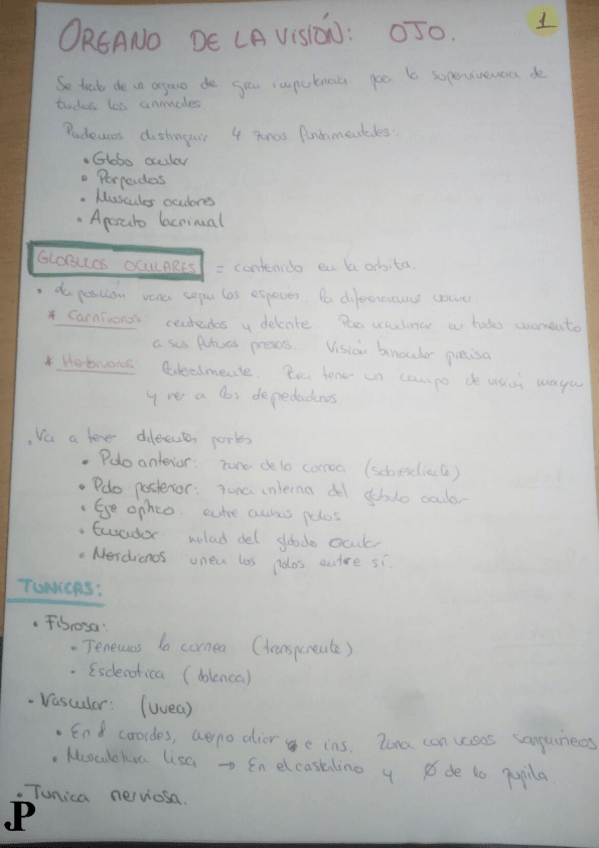 ORGANO DE LA VISIÓN: OJO.
1
Se trata de un organo de gran importancia para la supervivencia de
todos los animales
Podemos distinguir 4 zonas fundamentales:
• Globo ocular
• Parpados
• Musculos oculares
• Aparato lacrimal
GLOBULOS OCULARES = contenido en la orbita.
• La posición varia segun las especies, la diferenciamos
* Carnivoros centrados y delante. Para visualizar en todo momento
a sus futuras presas. Visión binocular precisa
* Herbivoros lateralmente. Para tener un campo de visión mayor
y ver a los depredadores
. Va a tener diferentes partes
• Polo anterior: zona de la cornea (sobresaliente)
• Polo posterior: zona interna del globulo ocular
• Eje optico: entre ambos polos
• Ecuador mitad del globulo ocular
• Meridianos unen los polos entre sí.
TUNICAS:
• Fibrosa:
• Tenemos la cornea (transparente)
• Esclerotica (blanca)
• Vascular: (uvea)
• En coroides, cuerpo ciliar e iris. Zona con vasos sanguineos
• Musculatura lisa → En el cristalino y Ø de la pupila.
• Tunica nerviosa.
JP